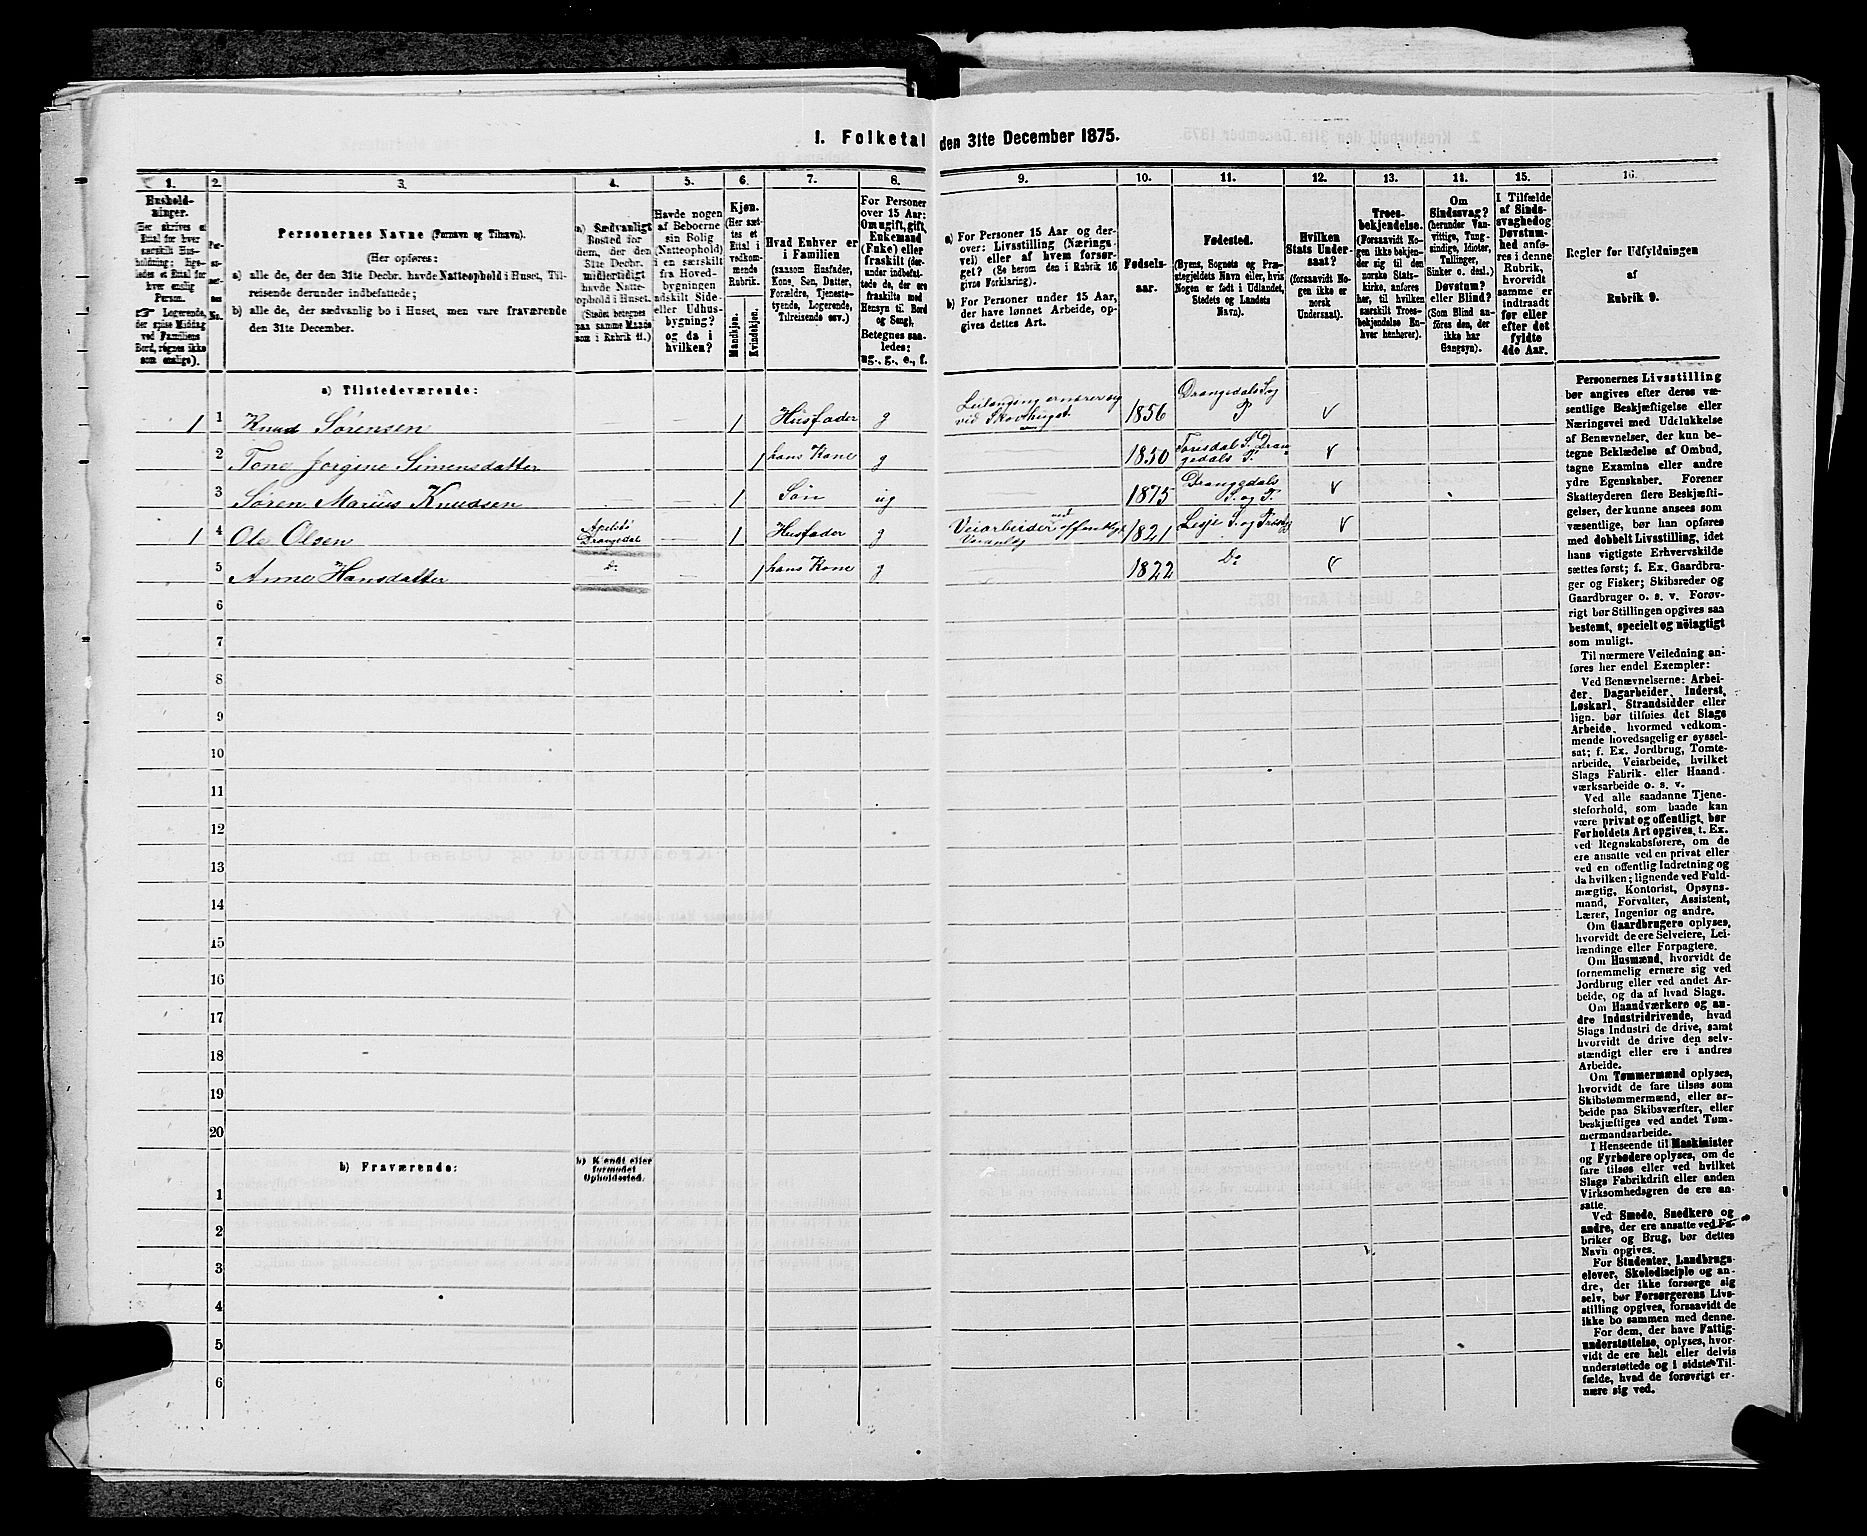 1. Folketal den 31te December 1875.
1. 2. 3. 4. 5. 6. 7. 8. 9. 10. 11. 12. 13. 14. 15. 16.
Hushold-
ninger.
(Her skrives et
Ettal for hver
særskilt Hus-
holdning; lige-
ledes et Ettal for
hver enslig
Person.
Logerende,
der spise Middag
ved Familiens
Bord, regnes ikke
som enslige).
Per-
so-
ner-
nes
No.
Personernes Navne (Fornavn og Tilnavn).
(Her opføres:
a) alle de, der den 31te Decbr. havde Natteophold i Huset, Til-
reisende derunder indbefattede;
b) alle de, der sædvanlig bo i Huset, men vare fraværende
den 31te December.
a) Sædvanligt
Bosted for
dem, der den
31te Decbr.
midlertidigt
havde Natte-
ophold i Huset.
(Stedet betegnes
paa samme Maade
som i Rubrik 11.)
Havde nogen
af Beboerne
sin Bolig
(Natteophold)
i en særskilt
fra Hoved-
bygningen
adskilt Side-
eller Udhus-
bygning?
og da i
hvilken?
Kjøn.
(Her sæt-
tes et
Ettal i
vedkom-
mende
Rubrik.
Mandkjøn.
Kvindekjøn.
Hvad Enhver er
i Familien
(saasom Husfader,
Kone, Søn, Datter,
Forældre, Tjeneste-
tyende, Logerende,
Tilreisende osv.)
For Personer
over 15 Aar:
Om ugift, gift,
Enkemand
(Enke) eller
fraskilt (der-
under indbefat-
tede de, der ere
fraskilte med
Hensyn til Bord
og Seng).
Betegnes saa-
ledes:
ug., g., e., f.
a) For Personer 15 Aar og der-
over: Livsstilling (Nærings-
vei) eller af hvem forsør-
get? (Se herom den i Rubrik 16
givne Forklaring).
b) For Personer under 15 Aar,
der have lønnet Arbeide, op-
gives dettes Art.
Fødsels-
aar.
Fødested.
(Byens, Sognets og Præ-
stegjeldets Navn eller, hvis
Nogen er født i Udlandet,
Stedets og Landets
Navn).
Hvilken
Stats Under-
saat?
(forsaavidt No-
gen ikke er
norsk
Undersaat).
Troes-
bekjendelse.
(Forsaavidt No-
gen ikke bekjen-
der sig til den
norske Stats-
kirke, anføres
her, til hvilken
særskilt Troes-
bekjendelse En-
hver henhører).
Om
Sindssvag?
(herunder Van-
vittige, Tung-
sindige, Idioter,
Tullinger,
Sinker o. desl.)
Døvstum?
eller Blind?
(Som Blind an-
føres den, der
ikke har
Gangsyn).
I Tilfælde
af Sinds-
svaghed og
Døvstum-
hed anfø-
res i denne
Rubrik,
hvorvidt
samme er
indtraadt
før eller
efter det
fyldte
4de Aar.
Regler for Udfyldningen
af
Rubrik 9.
a) Tilstedeværende:
1 1 Knud Sørensen — — 1 Husfader g Leilænding ernærer sig ved Skovhugst 1856 Drangedals S og P v
2 Tone Jørgine Simensdatter — — 1 hans Kone g — 1850 Tørisdal S. Drangedals P. v
3 Søren Marius Knudsen — — 1 Søn ug — 1875 Drangedals S. og P. v
1 4 Ole Olsen Drangedal — 1 Husfader g Veiarbeider ved offentligt Veianlæg 1821 Lesje S. og Præstg v
5 Anne Hansdatter Do — 1 hans Kone g — 1822 Do v
6
7
8
9
10
11
12
13
14
15
16
17
18
19
20
b) Fraværende:
b) Kjendt eller
formodet
Opholdssted.
1
2
3
4
5
6
Personernes Livsstilling
bør angives efter deres væ-
sentlige Beskjæftigelse eller
Næringsvei med Udelukkelse
af Benævnelser, der kun be-
tegne Beklædelse af Ombud,
tagne Examina eller andre
ydre Egenskaber. Forener
Skatteyderen flere Beskjæfti-
gelser, der kunne ansees som
væsentlige, bør han opføres
med dobbelt Livsstilling, idet
hans vigtigste Erhvervskilde
sættes først; f. Ex. Gaardbru-
ger og Fisker; Skibsreder og
Gaardbruger o. s. v. Forøv-
rigt bør Stillingen opgives saa
bestemt, specielt og nøiagtigt
som muligt.
Til nærmere Veiledning an-
føres her endel Exempler:
Ved Benævnelserne: Arbei-
der, Dagarbeider, Inderst,
Løskarl, Strandsidder eller
lign. bør tilføies det Slags
Arbeide, hvormed vedkom-
mende hovedsagelig er syssel-
sat; f. Ex. Jordbrug, Tomte-
arbeide, Veiarbeide, hvilket
Slags Fabrik- eller Haand-
værksarbeide o. s. v.
Ved alle saadanne Tjene-
steforhold, som baade kan
være privat og offentligt, bør
Forholdets Art opgives, t. Ex.
ved Regnskabsførere, om de
ere ansatte ved en privat eller
ved en offentlig Indretning og
da hvilken; lignende ved Fuld-
mægtig, Kontorist, Opsyns-
mand, Forvalter, Assistent,
Lærer, Ingeniør og andre.
Om Gaardbrugere oplyses,
hvorvidt de ere Selveiere, Lei-
lændinge eller Forpagtere.
Om Husmænd, hvorvidt de
fornemmelig ernære sig ved
Jordbrug eller ved andet Ar-
beide, og da af hvad Slags.
Om Haandværkere og an-
dre Industridrivende, hvad
Slags Industri de drive, samt
hvorvidt de drive den selv-
stændigt eller ere i andres
Arbeide.
Om Tømmermænd oplyses,
hvorvidt de fare tilsøs som
Skibstømmermænd, eller ar-
beide paa Skibsværfter, eller
beskjæftiges ved andet Tøm-
mermandsarbeide.
I Henseende til Maskinister
og Fyrbødere oplyses, om de
fare tilsøs eller ved hvilket
Slags Fabrikdrift eller anden
Virksomhedsgren de ere an-
satte.
Ved Smede, Snedkere og
andre, der ere ansatte ved Fa-
briker og Brug, bør dettes
Navn opgives.
For Studenter, Landbrugs-
elever, Skoledisciple og an-
dre, der ikke forsørge sig
selv, bør Forsørgerens Livs-
stilling opgives, forsaavidt de
ikke bo sammen med denne.
For dem, der have Fattig-
understøttelse, oplyses, hvor-
vidt de ere helt eller delvis
understøttede og i sidste Til-
fælde, hvad de forøvrigt er-
nære sig ved.